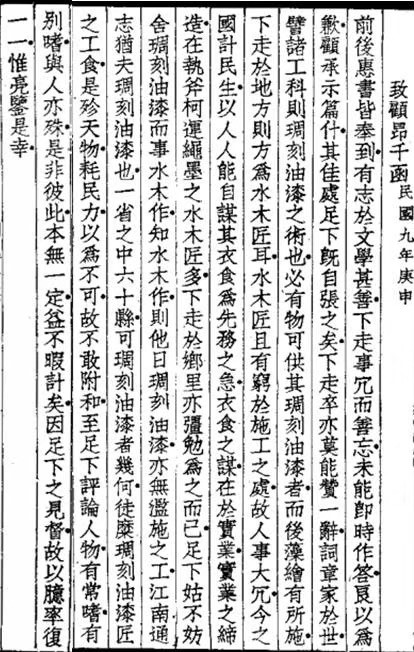 致顧昂千函民國九年庚申
前後惠書皆奉到有志於文學甚善下走事冗而善忘未能卽時作答良以為
歉顧承示篇什其佳處足下既自張之矣下走卒亦莫能贊一辭詞章家於世
譬諸工科則琱刻油漆之術也必有物可供其琱刻油漆者而後藻繪有所施
下走於地方則方為水木匠耳水木匠且有窮於施工之處故人事大冗今之
國計民生以人人能自謀其衣食為先務之急衣食之謀在於實業實業之締
造在執斧柯運繩墨之水木匠多下走於鄉里亦彊勉為之而已足下姑不妨
舍琱刻油漆而事水木作知水木作則他日琱刻油漆亦無濫施之工江南通
志猶夫琱刻油漆也一省之中六十縣可琱刻油漆者幾何徒糜琱刻油漆匠
之工食是殄天物耗民力以為不可故不敢附和至足下評論人物有常嗜有
別嗜與人亦殊是非彼此本無一定益不暇計矣因足下之見督故以臆率復
一一惟亮鑒是幸